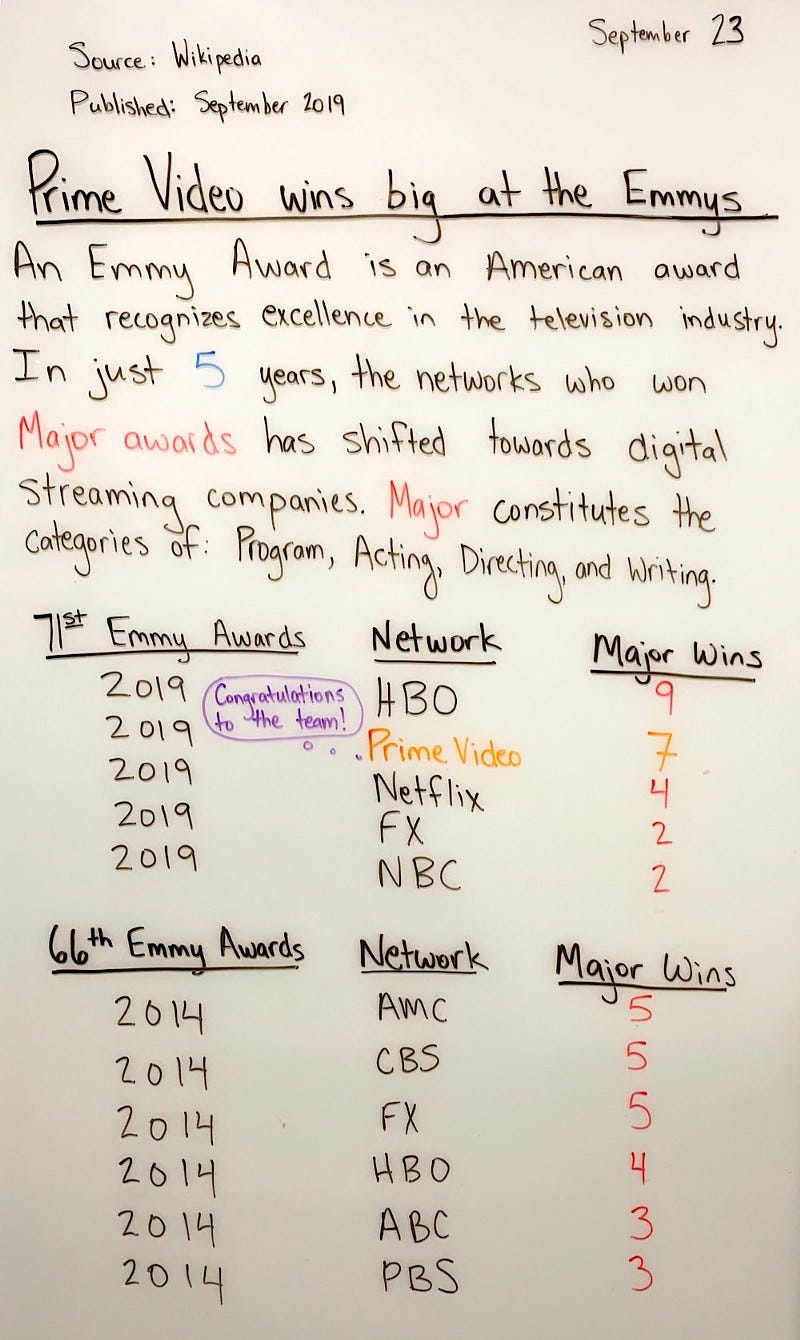 September 23
Source: Wikipedia
Published: September 2019
Prime Video wins big at the Emmys
An Emmy Award is an American award
that recognizes excellence in the television industry.
In just 5 years, the networks who won
Major awards has shifted towards digital
streaming companies. Major constitutes the
categories of: Program, Acting, Directing, and Writing.
71st Emmy Awards Network Major Wins
2019 HBO 9
Congratulations
to the team!
2019 Prime Video 7
2019 Netflix 4
2019 FX 2
2019 NBC 2
66th Emmy Awards Network Major Wins
2014 AMC 5
2014 CBS 5
2014 FX 5
2014 HBO 4
2014 ABC 3
2014 PBS 3